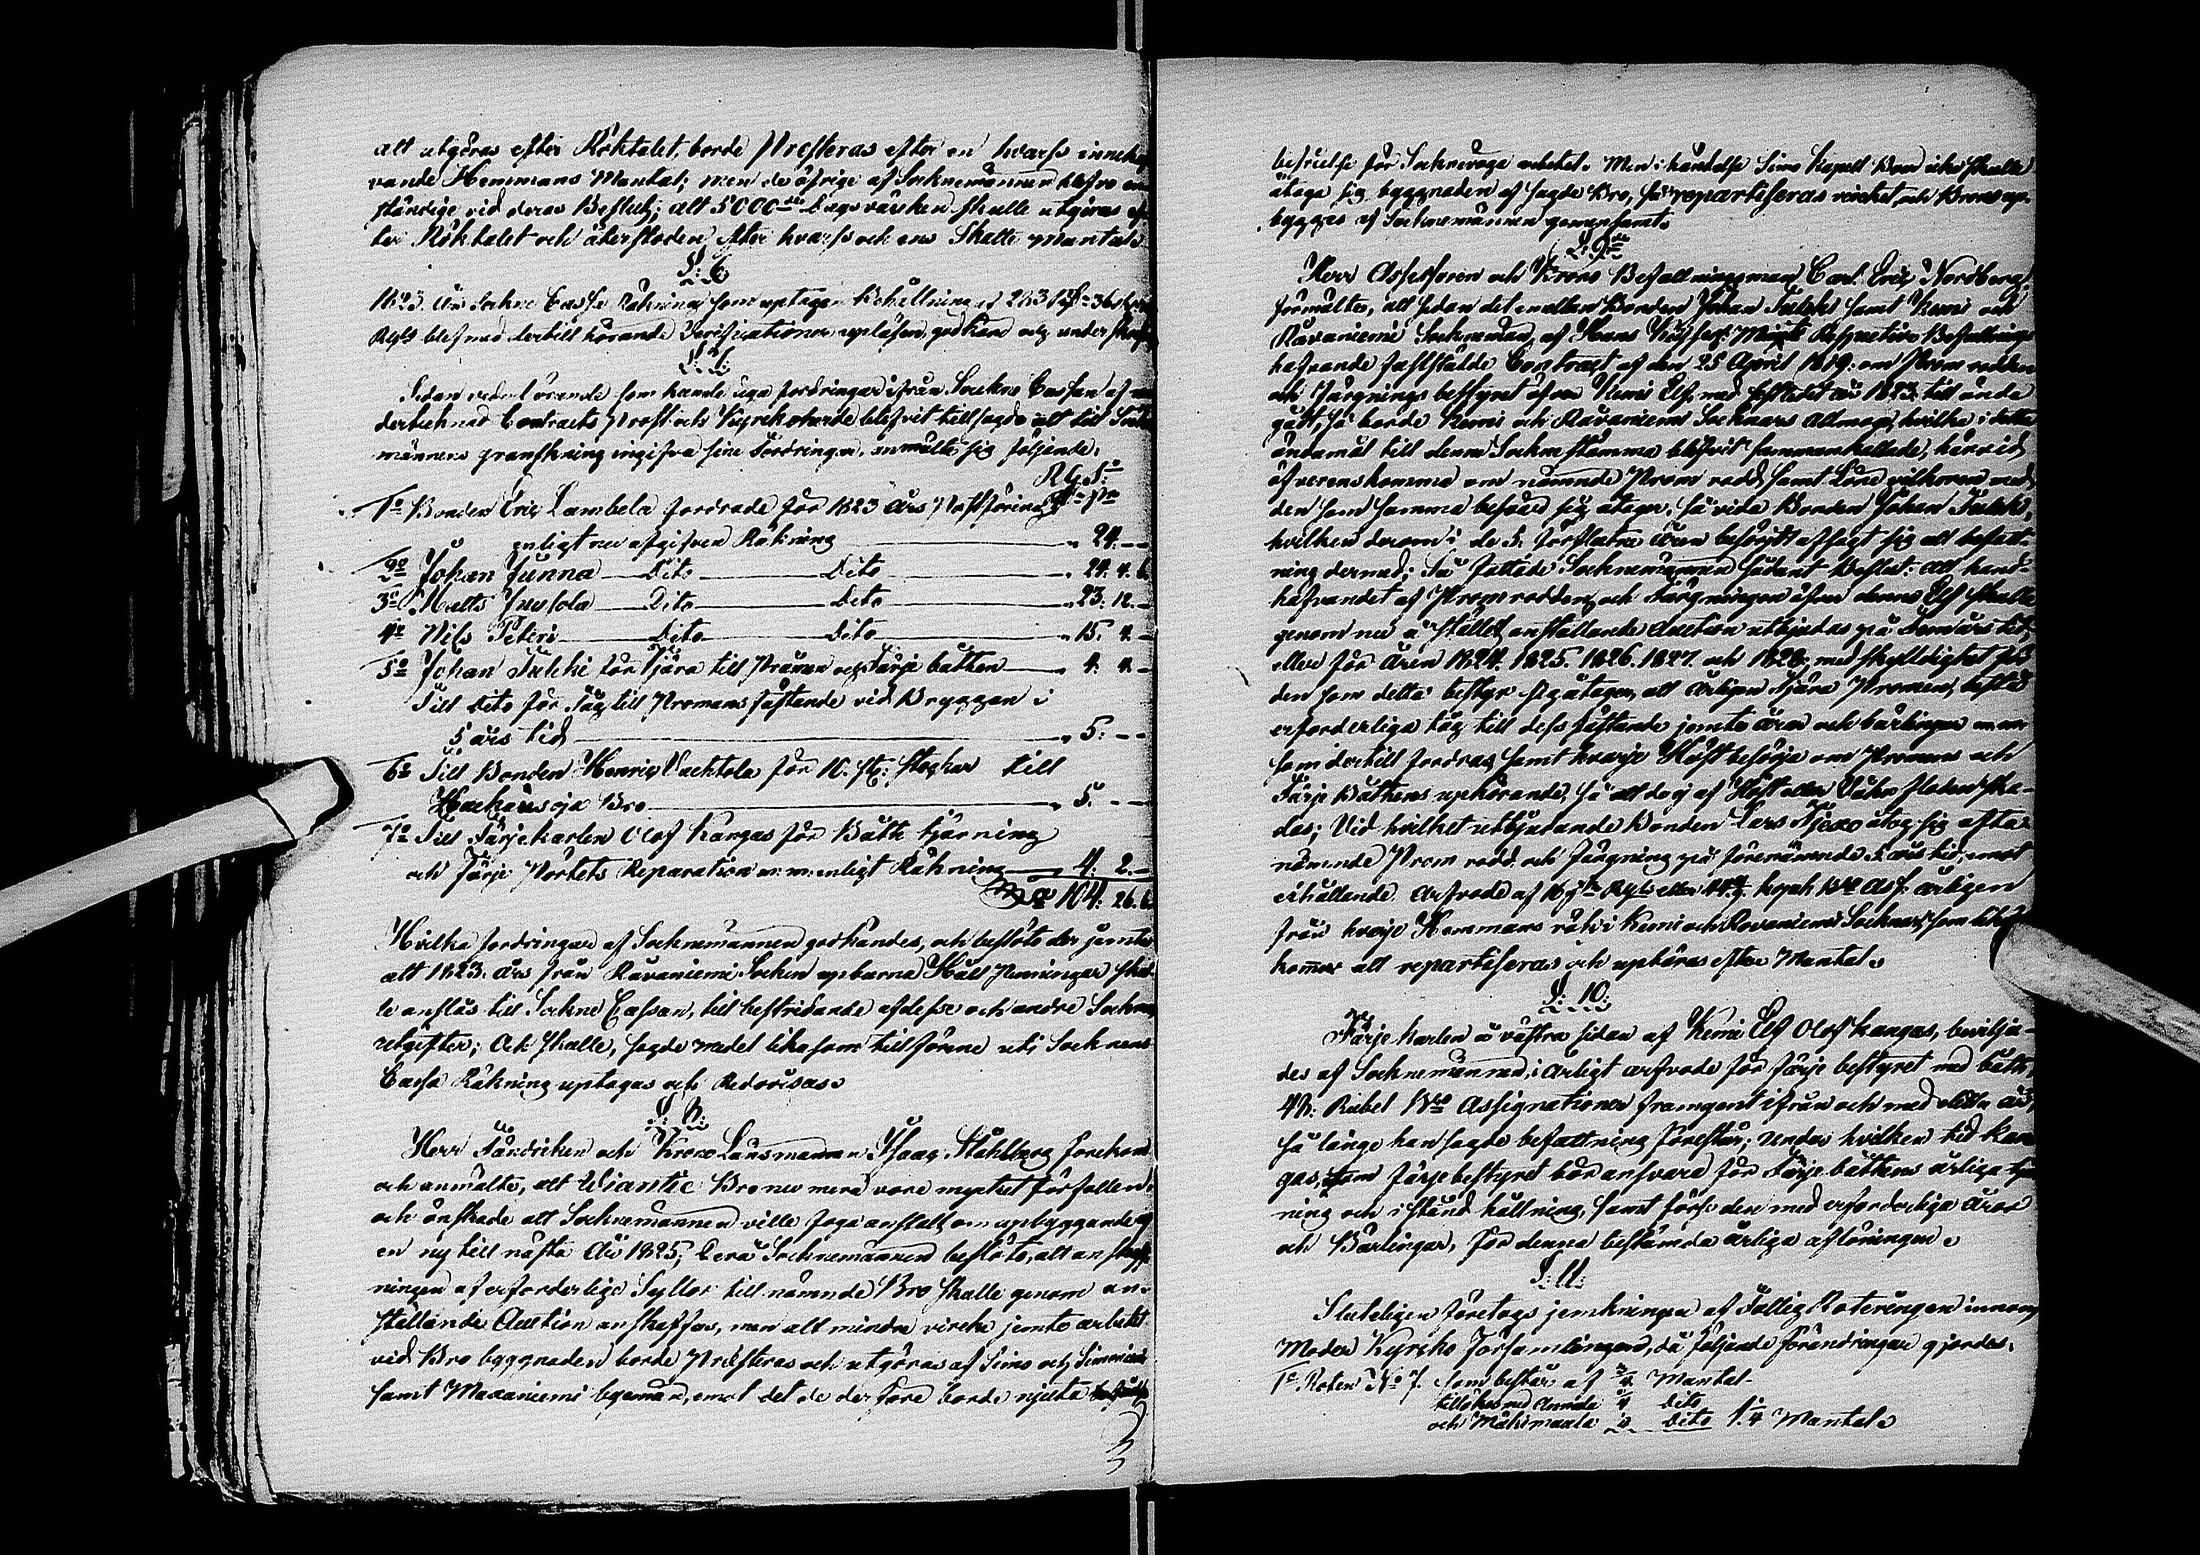 alt utgöras efter Röktalet, borde Presteras efter en hvars inneha
vande Hemmans Mantal; men de öfrige af Socknemännen blefvo en
ständige vid deras Beslut; att 5000 Dagsvärken skulle utgöras ef
ter Röktalet och återstoden efter hvars och ens Skatte mantal.
§. 6.
1823 års Sockne Cassa Räkning som upptager Behållning af 263 36
Rgds blef med dertill hörande Verificationer uppläsen, godkänd och underskrifven
§. 7.
Sedan vederbörande som hande äga fordringar ifrån Sockne Cassan af un
dertecknad Contracts Prost och Kyrkoherde blifvit tillsagde att till Sockne
männens granskning ingifva sina Fordringar, anmälte sig följande,
R.G.S:
1o Bonden Eric Lambela fordrade för 1823 års Postföring
enligt nu afgifven Räkning 24. —
2o Johan Junna Dito Dito 24. 4. 6
3o Matts Juusola Dito Dito 23. 12. —
4o Nils Peteri Dito Dito 15. 4. —
5o Johan Tulcki för Tjära till Pråmen och Färje båtten 4. 4. —
Till Dito för Tåg till Promens fästande vid Bryggan i
5 års tid 5. —
6o Till Bonden Henric Vachtola för 10. st: stockar till
Hachausoja Bro 5. —
7o Till Färjekarlen Olof Kangas för Båtts tjärning
och Färje Pörtets Reparation m:m: enligt Räkning 4. 2. —
104. 26. 6
Hvilka fordringar af Socknemännen godkändes, och beslöts der jemte
att 1823. års från Råvaniemi Socken upburna Håll Penningar skul
le anslås till Sockne Cassan, till bestridande af desse och andre Sockne
utgifter; Och skulle, sagde medel likasom tillförene uti Socknens
Cassa Räkning uptagas och Redovisas.
§. 8.
Herr Fändriken och Krono Länsmannen Isaac Ståhlberg förekom
och anmälte, att Wiantie Bro nu mera vore mycket förfallen,
och önskade att Socknemännen ville foga anstalt om upbyggande af
en ny till nästa År 1825; Dera Socknemännen beslöto, att anskaff
ningen af erforderlige Syllor till nämnde Bro skulle genom an-
ställande Auction anskaffas, men alt mindre virke jemte arbetet
vid Bro byggnaden borde Presteras och utgöras af Simo och Simoniemi
samt Maxniemi byamän, emot det de der före borde njuta
befrielse för Socknevägs arbetet. Men i händelse Simo Kapell Boer icke skulle
åtaga sig byggnaden af sagde Bro, så repartiseras virket och Bron up-
bygges af Socknemännen gemensamt.
§. 9.
Herr Assessoren och Krono Befallningsman Carl Eric Nordberg
förmälte, att sedan det emellan Bonden Johan Tulcki samt Kemi och
Råvaniemi Socknemän, af Hans Kejserl: Majts Respective Befallnings
hafvande fastställde Contract af den 25 April 1819. om Prom rodden
och Färgnings bestyret öfver Kemi Elf, med slutet år 1823 till ända
gått, så borde Kemi och Råvaniemi Socknars Allmoge, hvilke i detta
ändamål till denna Sockne stämma blifvit sammankallade, härvid
öfverenskomma om nämnde Prom rodd samt Löne vilkoren med
den som samma befattn sig åtager, så vida Bonden Johan Tulcki,
hvilken derom i de 5. förflutna åren besörjdt afsagt sig all befatt-
ning dermed; Så fattade Socknemännen sådant Beslut: att hand-
hafvandet af Prom rodden och Färgningen öfver denna Elf skulle
genom nu å stället anställande Auction utbjudas på Fem års tid,
eller för åren 1824. 1825. 1826. 1827. och 1828, med skyldighet för
den som detta bestyr sig åtager, att årligen tjära Promen, bestå
erforderliga tåg till dess fästande jemte åror och bårlingar m:m:
som dertill fordras, samt hvarje Höst besörja om Promens och
Färje Båttens upkörande, så att de ej af Höst eller Våhr floden ska-
das; Vid hvilket utbjudande Bonden Lars Hjexo åtog sig ofta-
nämnde Prom rodd och Färgning på förenämnde 5 års tid, emot
erhållande Arfvode af 16 Rgds eller 44 kopek Bco Ass. årligen
från hvarje Hemmans rök i Kemi och Rovaniemi Socknar, som till-
kommer att repartiseras och uptöras efter Mantal.
§. 10.
Färje karlen å västra sidan af Kemi Elf Olof Kangas, bevilja-
des af Socknemännen, i årligt arfvode för färje bestyret med båtte,
48: Rubel Bco Assignationer framgent ifrån och med detta år,
så länge han sagde befattning förestår; under hvilken tid Kan
gas, som färje bestyret bör ansvara för Färje båttens årliga tjär
ning och i stånd hållning, samt förse den med erforderliga åror
och Bårlingar, för denna bestämda årliga aflöningen.
§. 11.
Sluteligen företogs jemkningen af Fattig Roteringen innom
Moder Kyrcko Församlingen, då följande förändringar gjordes.
1o Roten No 7. Som består af 3/4 Mantal-
tillökes med Annala 1/4 Dito
och Mäkimaula Dito 1. 1/4 Mantal.